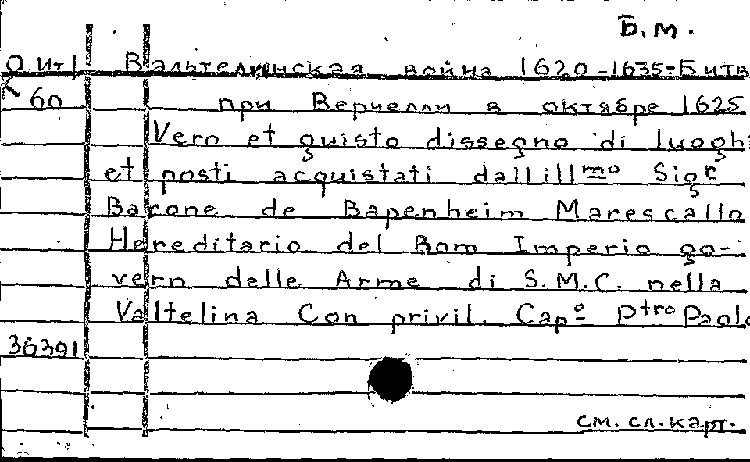 Б. м.
О Ит1 Вальтелинская война 1620-1635-Битв
60 при Верчелли в октябре 1625
Vero et guisto dissegno di luogh
et posti acquistati dall ill mo Sigr
Barone de Bapenheim Marescallo
Hereditario del Rom Imperio go-
vern delle Arme di S.M.C. nella
Valtelina Con privil. Capº Ptro Paolo
36391
см. сл. карт.